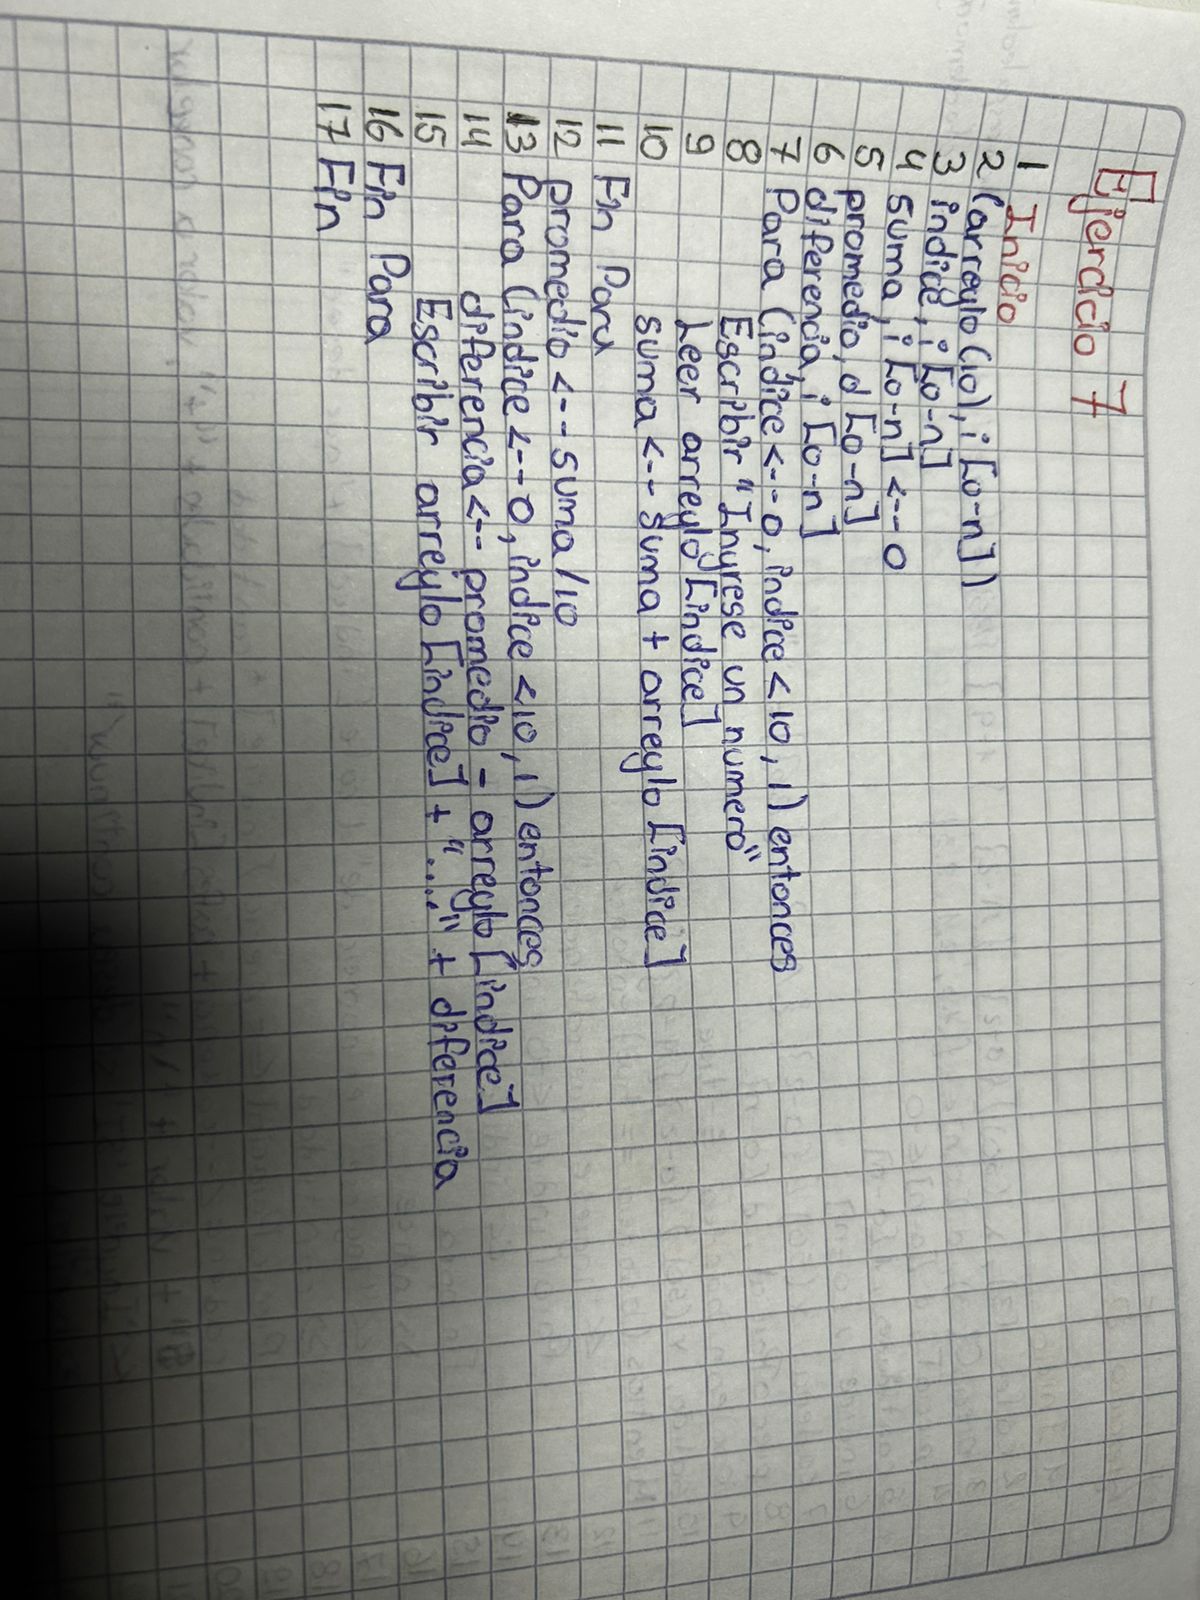 Ejercicio 7
1 Inicio
2 (arreglo (10), i [0-n])
3 indice, i [0-n]
4 suma, i [0-n] <-- 0
5 promedio, d [0-n]
6 diferencia, i [0-n]
7 Para (indice <-- 0, indice < 10, 1) entonces
8 Escribir "Ingrese un numero"
9 Leer arreglo [indice]
10 suma <-- suma + arreglo [indice]
11 Fin Para
12 promedio <-- suma / 10
13 Para (indice <-- 0, indice < 10, 1) entonces
14 diferencia <-- promedio - arreglo [indice]
15 Escribir arreglo [indice] + "....." + diferencia
16 Fin Para
17 Fin